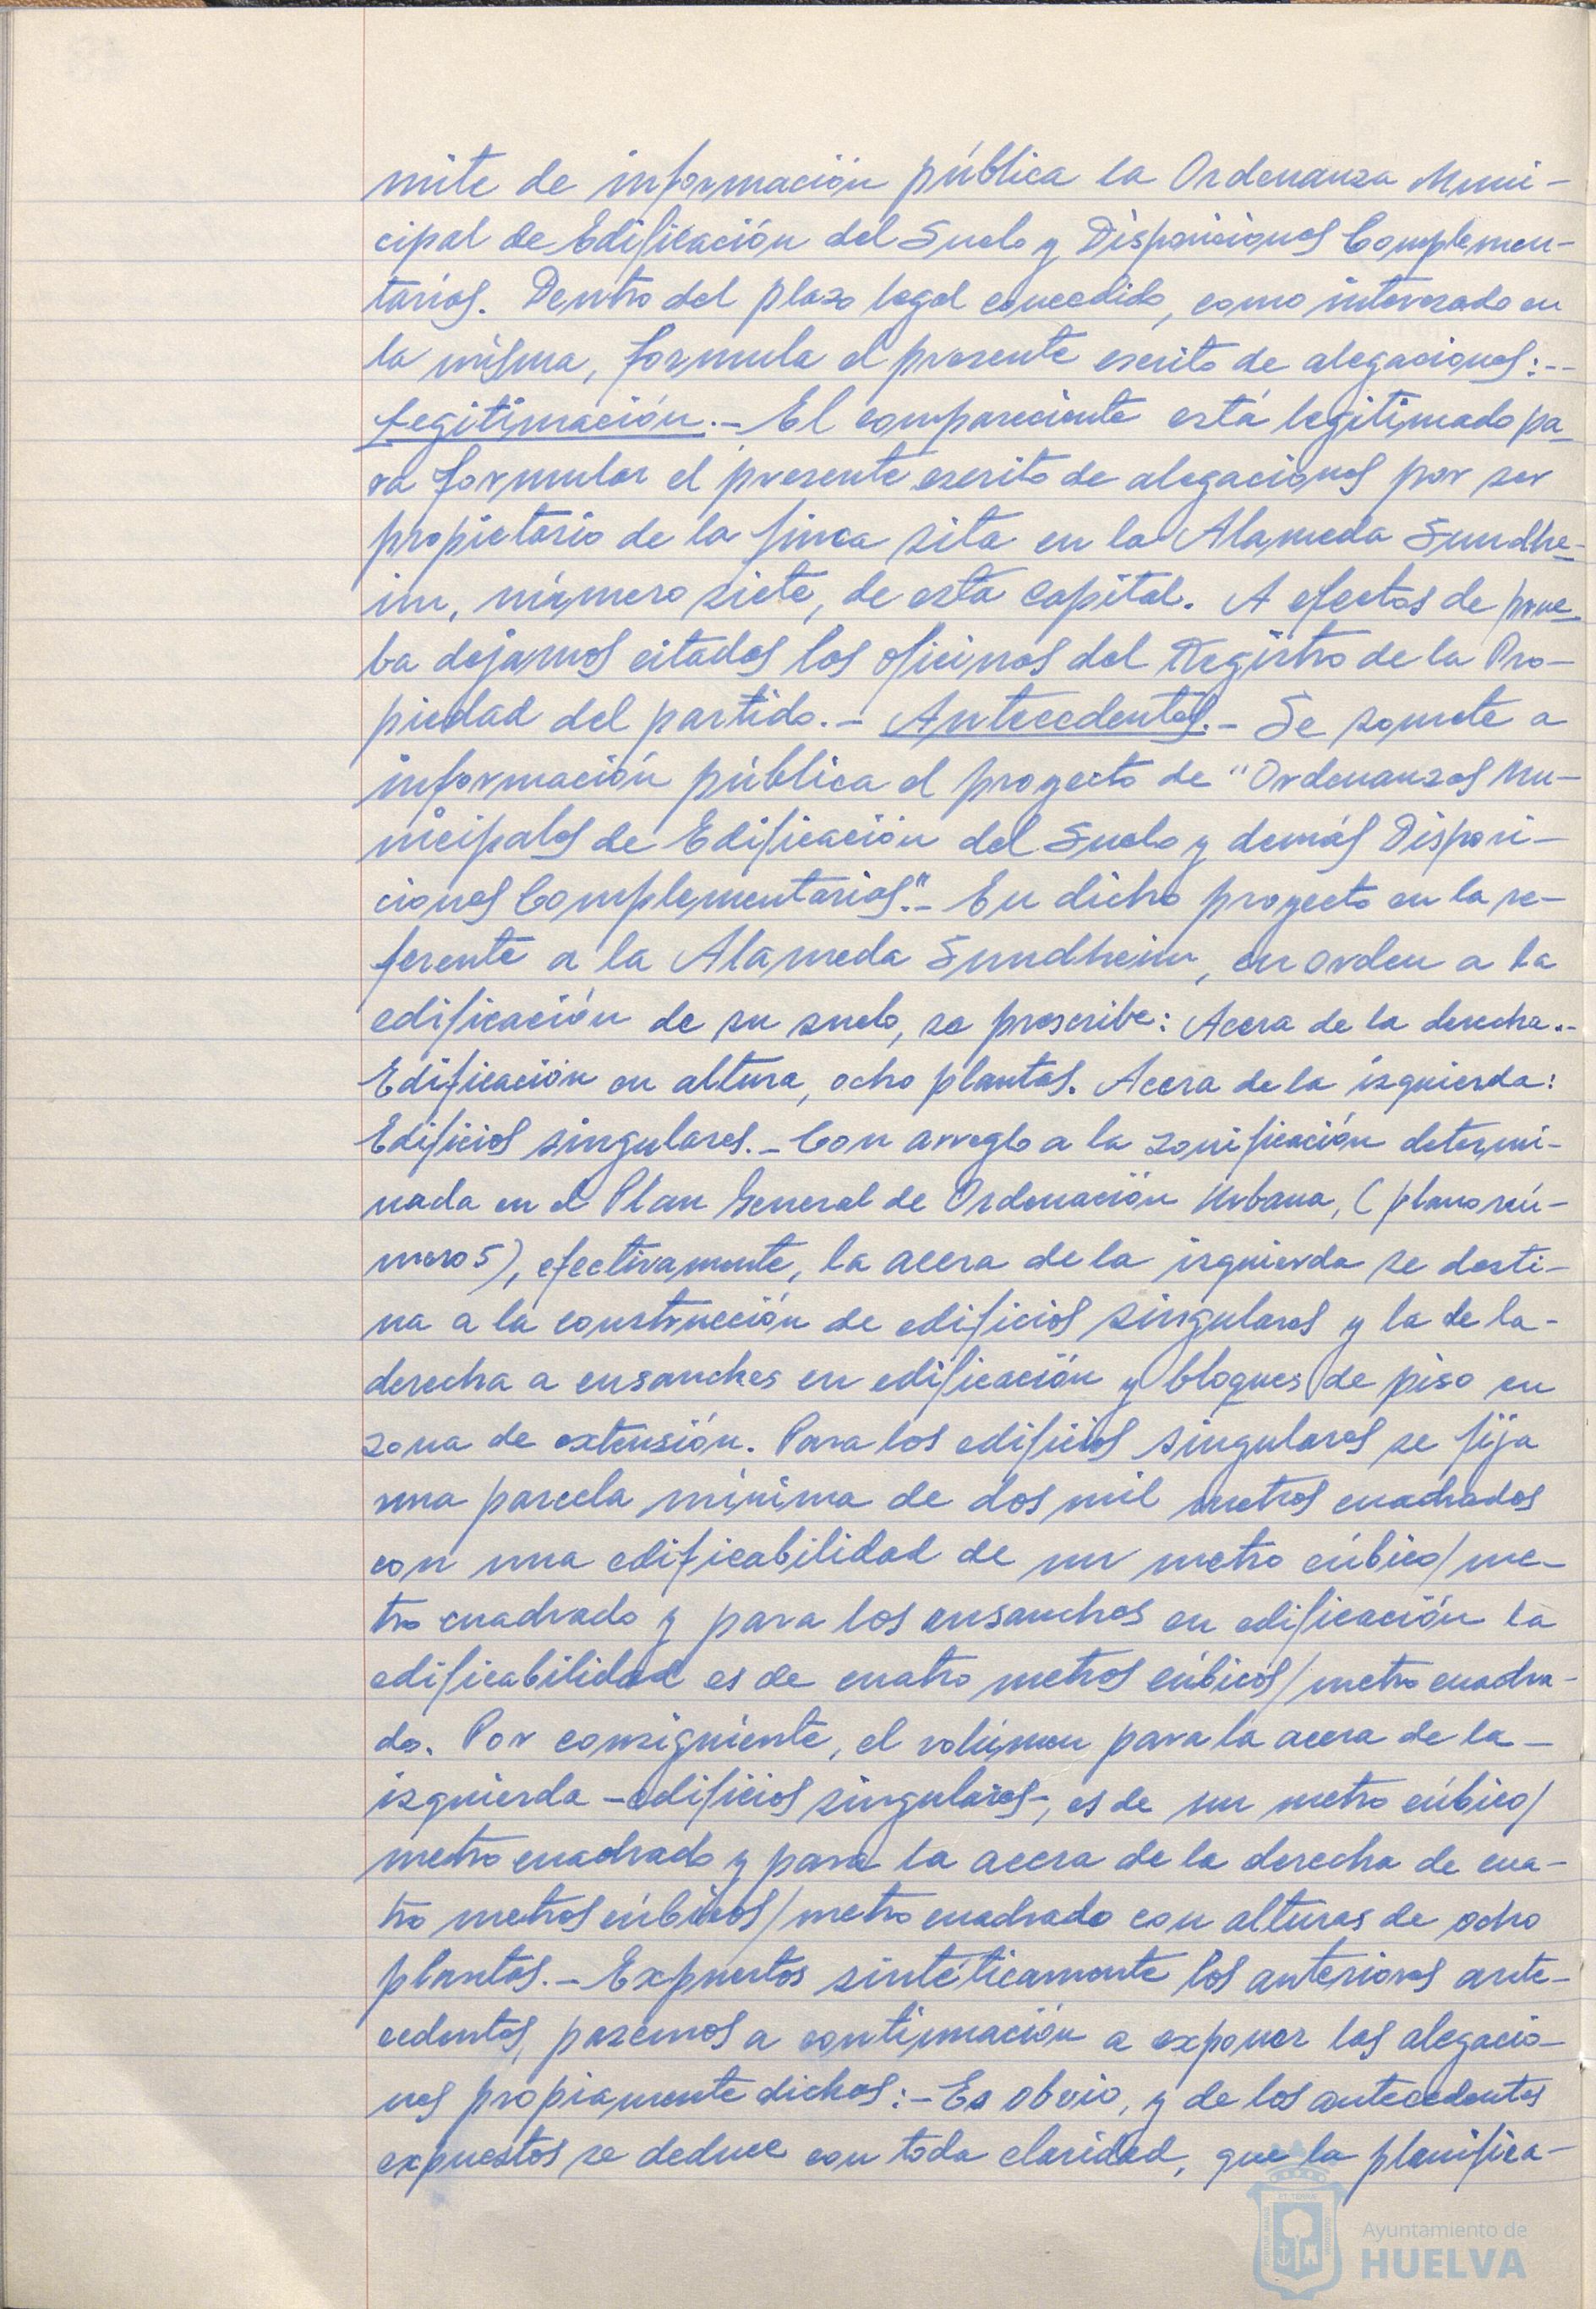 mite de información pública la Ordenanza Muni-
cipal de Edificación del Suelo y Disposiciones Complemen-
tarias. Dentro del plazo legal concedido, como interesado en
la misma, formula el presente escrito de alegaciones:--
Legitimación.- El compareciente está legitimado pa-
ra formular el presente escrito de alegaciones por ser
propietario de la finca sita en la Alameda Sundhe-
im, número siete, de esta capital. A efectos de prue-
ba dejamos citadas las oficinas del Registro de la Pro-
piedad del partido.- Antecedentes.- Se somete a
información pública el proyecto de "Ordenanzas Mu-
nicipales de Edificación del Suelo y demás Disposi-
ciones Complementarias".- En dicho proyecto en la re-
ferente a la Alameda Sundheim, en orden a la
edificación de su suelo, se prescribe: Acera de la derecha.-
Edificación en altura, ocho plantas. Acera de la izquierda:
Edificios singulares.- Con arreglo a la zonificación determi-
nada en el Plan General de Ordenación Urbana, (plano nú-
mero 5), efectivamente, la acera de la izquierda se desti-
na a la construcción de edificios singulares y la de la-
derecha a ensanches en edificación y bloques de piso en
zona de extensión. Para los edificios singulares se fija
una parcela mínima de dos mil metros cuadrados
con una edificabilidad de un metro cúbico/me-
tro cuadrado y para los ensanches en edificación la
edificabilidad es de cuatro metros cúbicos/metro cuadra-
do. Por consiguiente, el volúmen para la acera de la-
izquierda -edificios singulares-, es de un metro cúbico/
metro cuadrado y para la acera de la derecha de cua-
tro metros cúbicos/metro cuadrado con alturas de ocho
plantas.- Expuestos sintéticamente los anteriores ante-
cedentes, pasemos a continuación a exponer las alegacio-
nes propiamente dichas:- Es obvio, y de los antecedentes
expuestos se deduce con toda claridad, que la planifica-
Ayuntamiento de
HUELVA